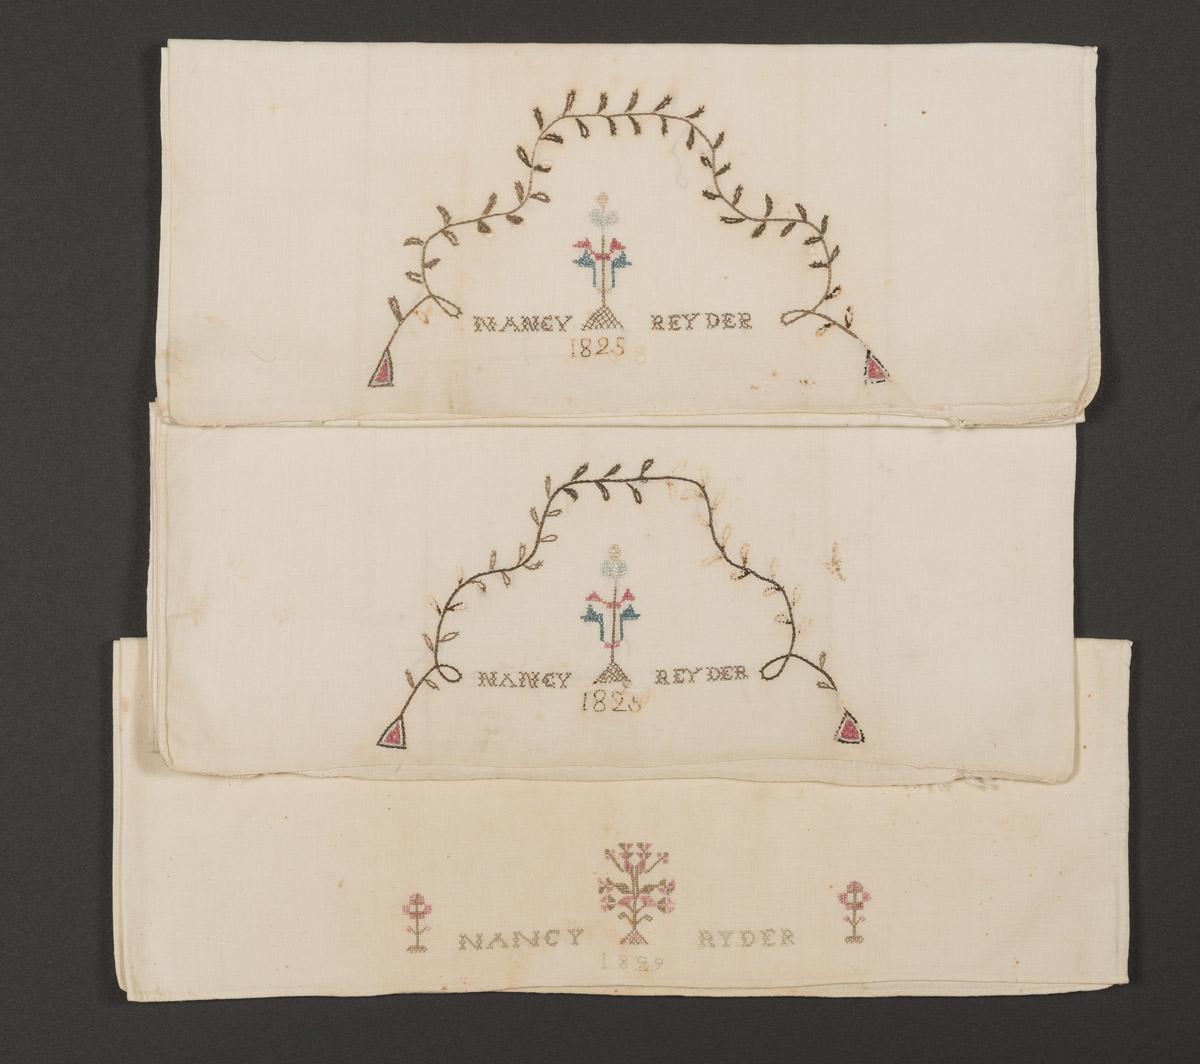 NANCY REYDER
1825
NANCY REYDER
1825
NANCY RYDER
1829